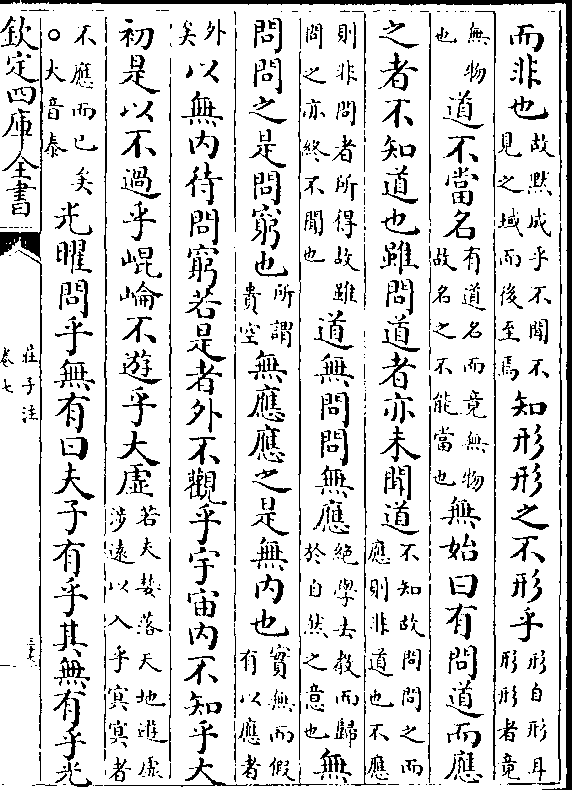 而非也故黙成乎不聞不見之域而後至焉知形形之不形乎形自形耳形形者竟
無物也道不當名有道名而竟無物故名之不能當也無始曰有問道而應
之者不知道也雖問道者亦未聞道不知故問問之而應則非道也不應
則非問者所得故雖問之亦終不聞也道無問問無應絶學去教而歸於自然之意也無
問問之是問窮也所謂責空無應應之是無内也實無而假有以應者
外矣以無内待問窮若是者外不觀乎宇宙内不知乎大
初是以不過乎崐崘不遊乎太虚若夫婪落天地遊虚涉逺以入乎㝠㝠者
不應而已矣○大音泰光曜問乎無有曰夫子有乎其無有乎光
欽定四庫全書
莊子注
卷七